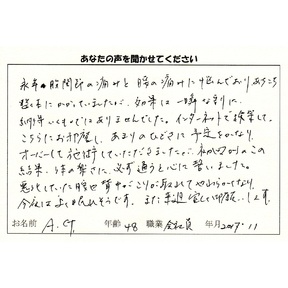 あなたの声を聞かせてください
永年、股関節の痛みと腰の痛みに悩んでおりあちこち
整体にかかっていましたが、効果は一瞬な割に
納得いくものではありませんでした。インターネットで検索して、
こちらにお邪魔し、あまりのひどさに予定をかなり
オーバーして施術していただきましたが、
結果、体の軽さに、必ず通うと心に誓いました。
悪化していた腰も背中のこりが取れてやわらかくなり
今夜はよく眠れそうです。また来週宜しくお願いします。
お名前 A. 年齢 48 職業 会社員 年月 2017.11